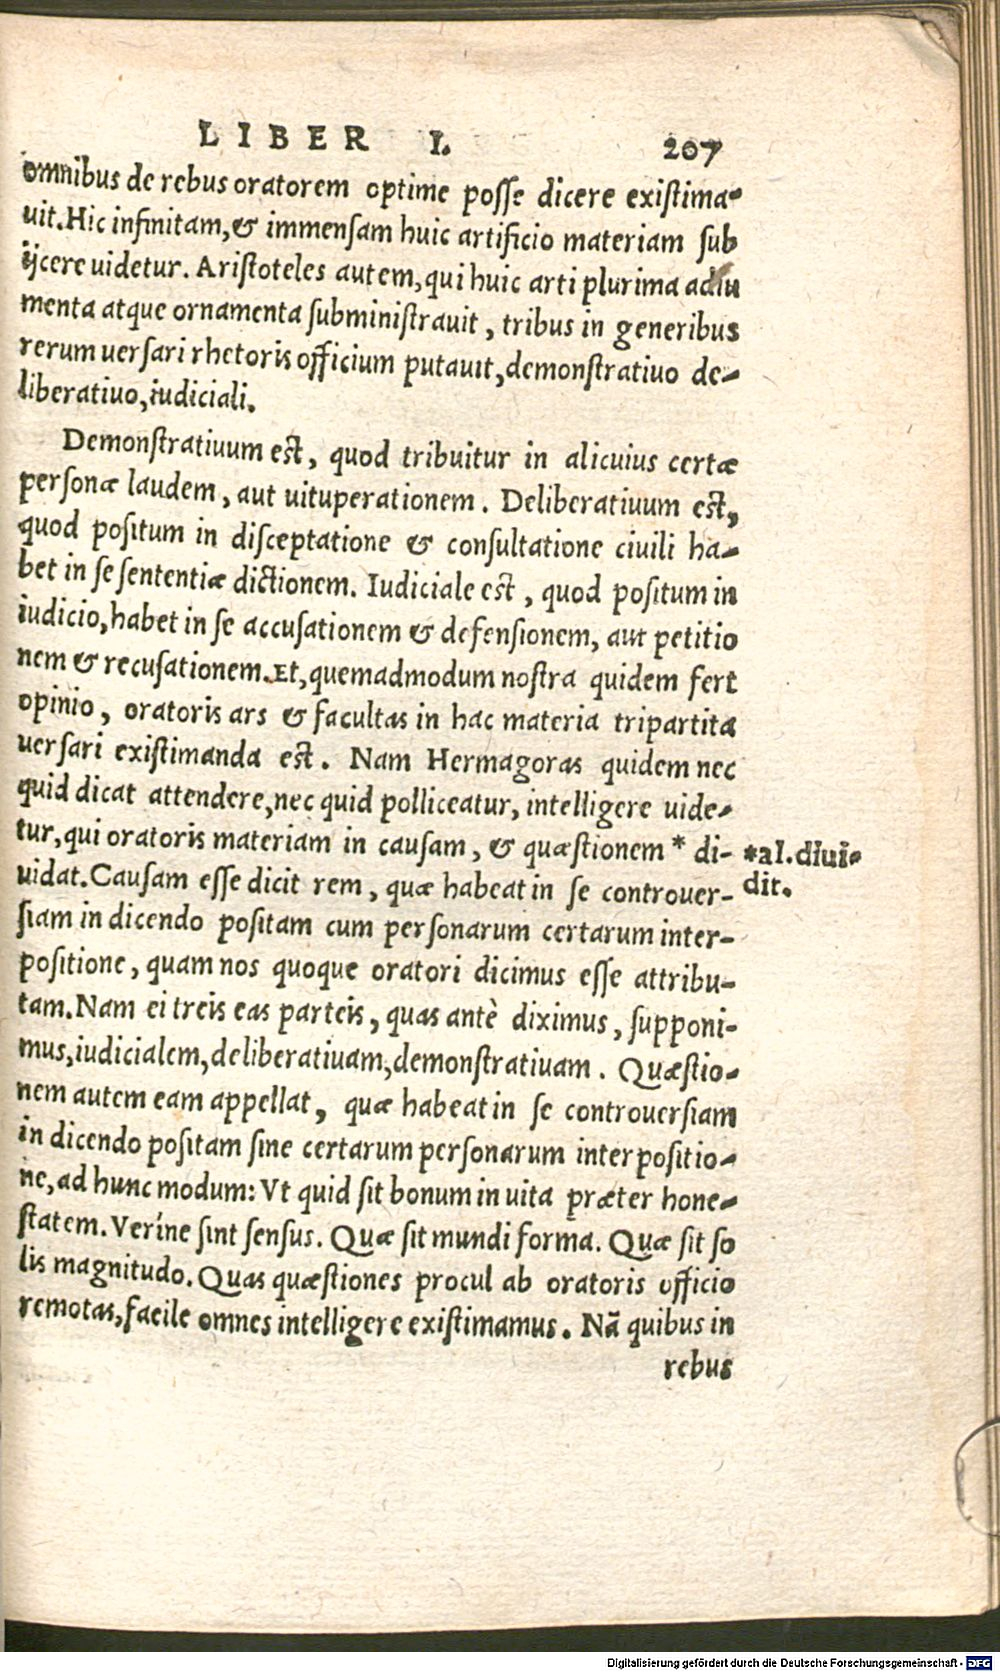 LIBER I. 207
omnibus de rebus oratorem optime posse dicere existima-
uit. Hic infinitam, & immensam huic artificio materiam sub
ijcere uidetur. Aristoteles autem, qui huic arti plurima adiu
menta atque ornamenta subministrauit, tribus in generibus
rerum uersari rhetoris officium putauit, demonstratiuo de-
liberatiuo, iudiciali.
Demonstratiuum est, quod tribuitur in alicuius certæ
personæ laudem, aut uituperationem. Deliberatiuum est,
quod positum in disceptatione & consultatione ciuili ha-
bet in se sententiæ dictionem. Iudiciale est, quod positum in
iudicio, habet in se accusationem & defensionem, aut petitio
nem & recusationem. Et, quemadmodum nostra quidem fert
opinio, oratoris ars & facultas in hac materia tripartita
uersari existimanda est. Nam Hermagoras quidem nec
quid dicat attendere, nec quid polliceatur, intelligere uide-
tur, qui oratoris materiam in causam, & quæstionem * di-
*al. diui-
uidat. Causam esse dicit rem, quæ habeat in se controuer-
dit.
siam in dicendo positam cum personarum certarum inter-
positione, quam nos quoque oratori dicimus esse attribu-
tam. Nam ei treis eas parteis, quas antè diximus, supponi-
mus, iudicialem, deliberatiuam, demonstratiuam. Quæstio-
nem autem eam appellat, quæ habeat in se controuersiam
in dicendo positam sine certarum personarum interpositio-
ne, ad hunc modum: Vt quid sit bonum in uita præter hone-
statem. Veríne sint sensus. Quæ sit mundi forma. Quæ sit so
lis magnitudo. Quas quæstiones procul ab oratoris officio
remotas, facile omnes intelligere existimamus. Nã quibus in
rebus
Digitalisierung gefördert durch die Deutsche Forschungsgemeinschaft - DFG